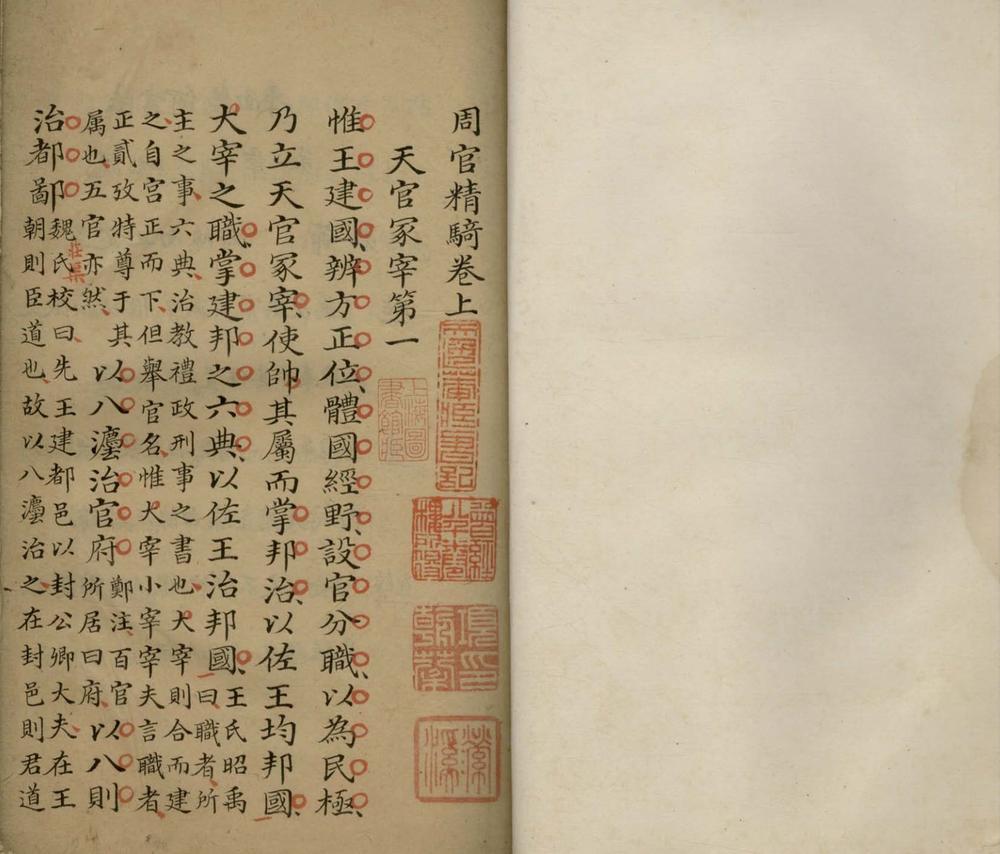 周官精騎卷上
天官冢宰第一
惟王建國辨方正位體國經野設官分職以為民極
乃立天官冢宰使帥其屬而掌邦治以佐王均邦國
大宰之職掌建邦之六典以佐王治邦國王氏昭禹曰職者所
主之事六典治教禮政刑事之書也大宰則合而建
之自宮正而下但舉官名惟大宰小宰宰夫言職者
正貳攷特尊于其属也五官亦然以八灋治官府鄭注百官所居曰府以八則
治都鄙魏氏校曰先王建都邑以封公卿大夫在王朝則臣道也故以八灋治之在封邑則君道
莊渠
上海圖書館藏